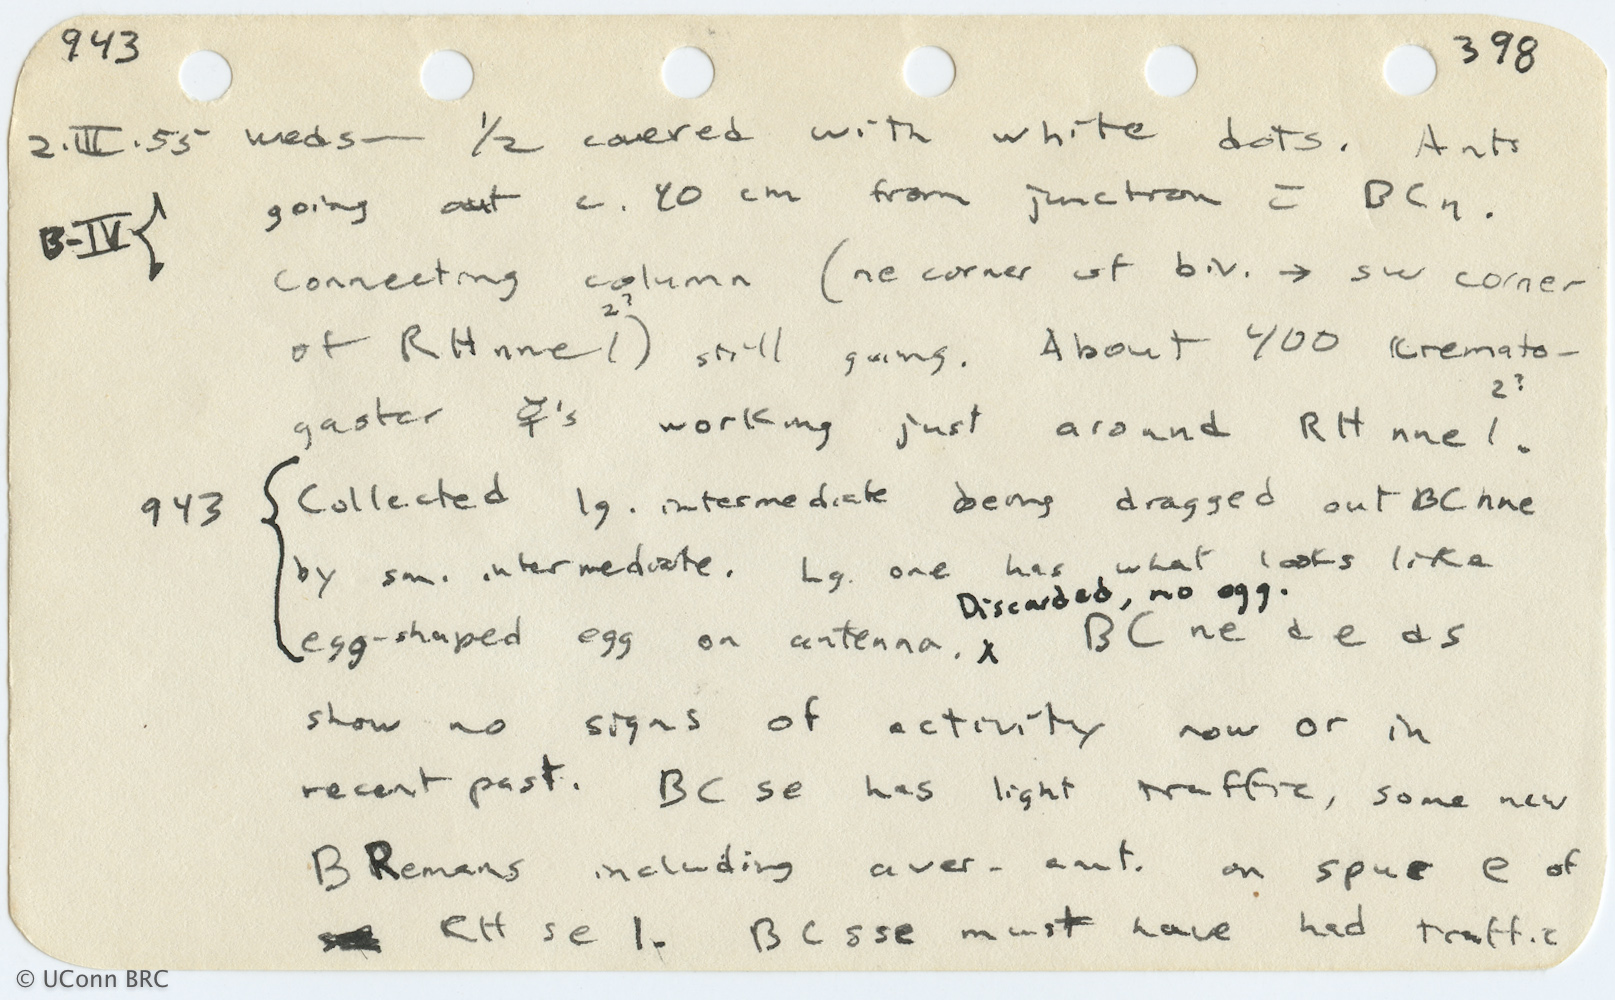 943 398
2.III.55 meds— 1/2 covered with white dots. Ants
B-IV { going out c. 40 cm from junction c̄ BCn.
Connecting column (ne corner of biv. → sw corner
of RHnne1) 2? still going. About 400 Cremato-
gaster ☿'s working just around RHnne1. 2?
943 { Collected lg. intermediate being dragged out BCnne
by sm. intermediate. Lg. one has what looks like
Discarded, no egg.
egg-shaped egg on antenna. x BC ne & e & s
show no signs of activity now or in
recent past. BC se has light traffic, some new
B Remans including aver- amt. on spur e of
RH se 1. BC sse must have had traffic
© UConn BRC